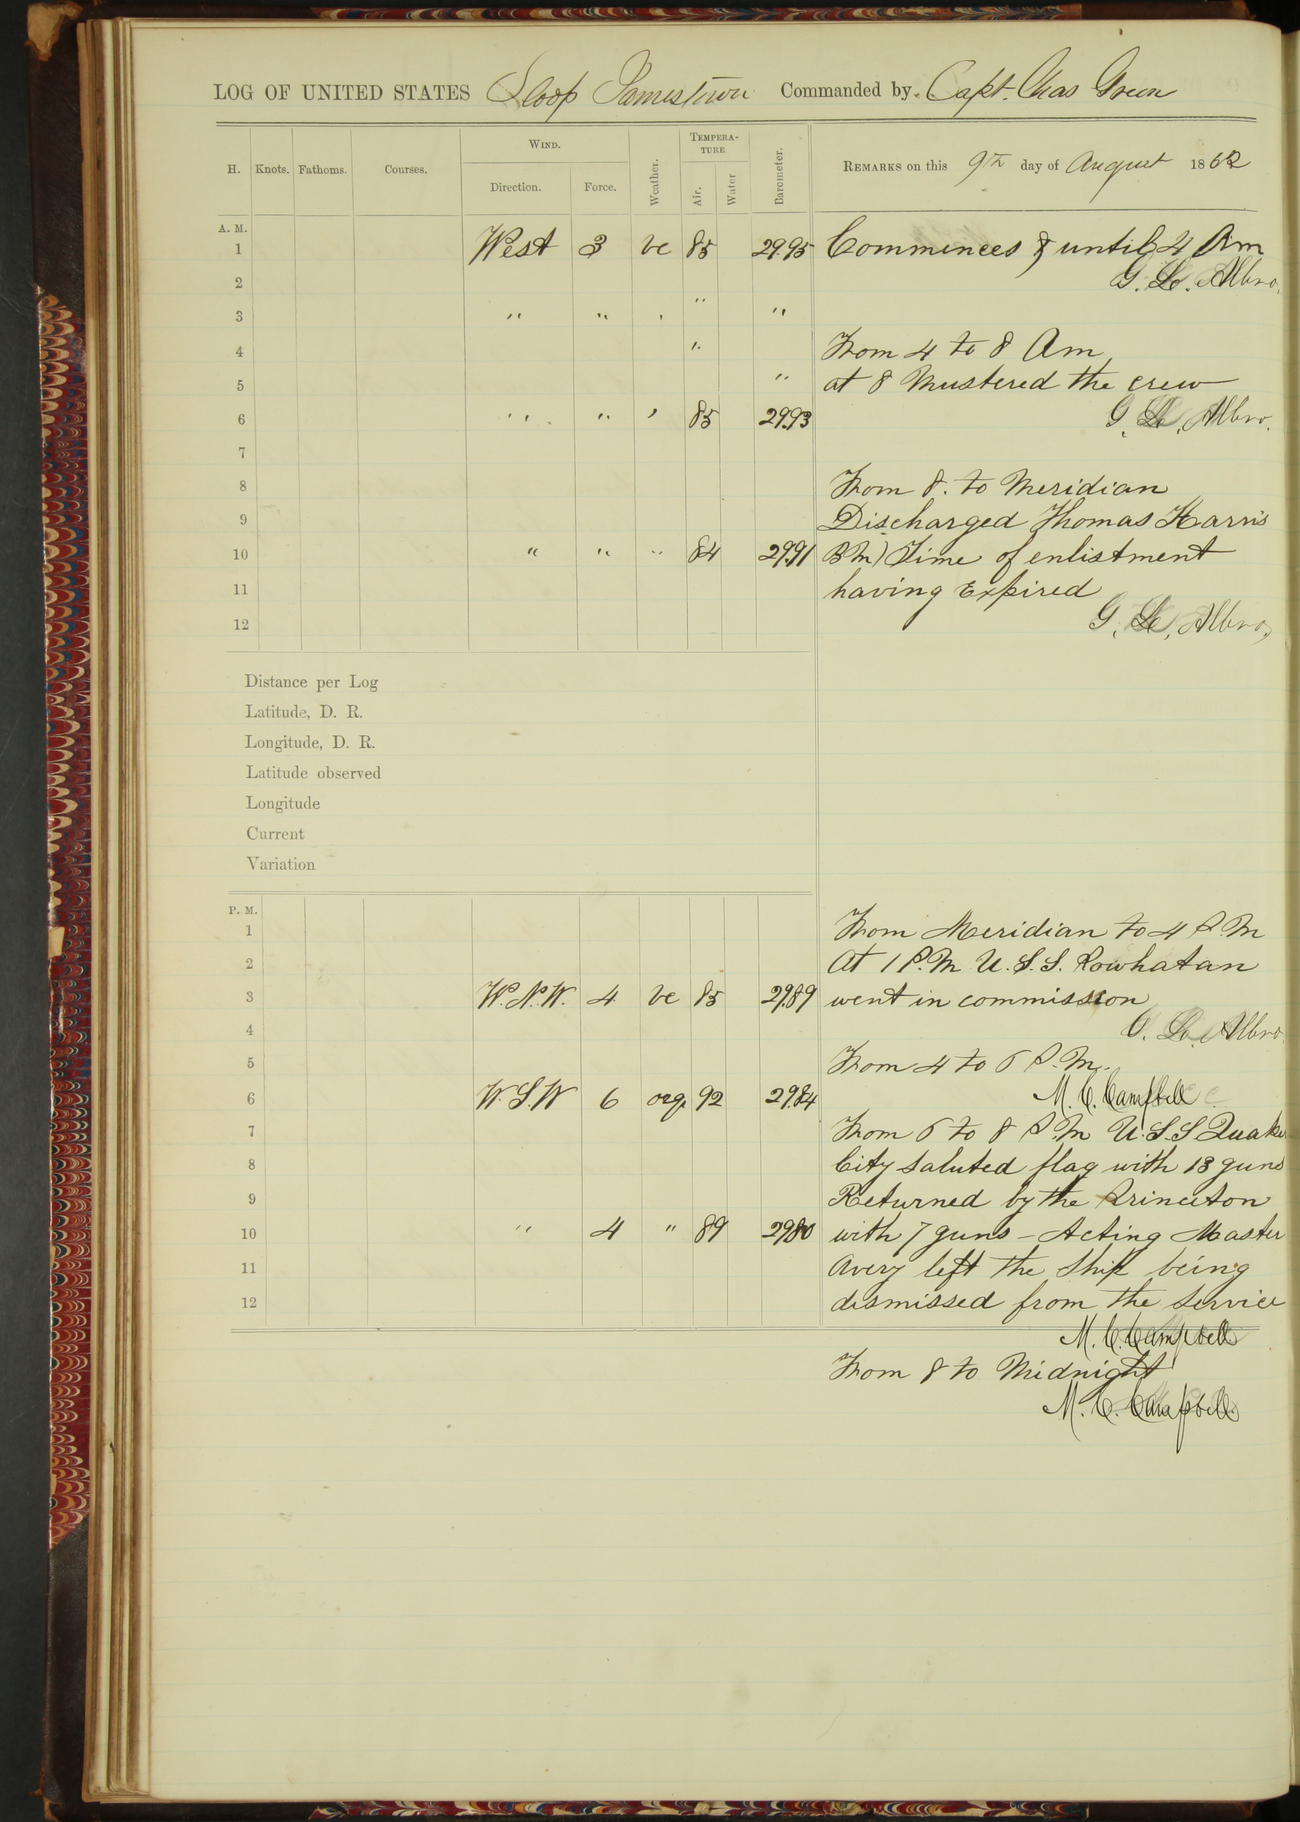 LOG OF UNITED STATES Sloop Jamestown Commanded by Capt. Chas Green
H. Knots. Fathoms. Courses. WIND. Direction. Force. Weather. TEMPERA-TURE. Air. Water Barometer. REMARKS on this 9th day of August 1862
A. M.
1 West 3 bc 85 29.95 Commences & until 4 Am
2 G. L. Albro.
3 " " " " "
4 " From 4 to 8 Am
5 " at 8 Mustered the crew
6 " " " 85 29.93 G. L. Albro.
7
8 From 8. to Meridian
9 Discharged Thomas Harris
10 " " " 84 29.91 B.M) Time of enlistment
11 having Expired
12 G. L. Albro,
Distance per Log
Latitude, D. R.
Longitude, D. R.
Latitude observed
Longitude
Current
Variation
P. M.
1 From Meridian to 4 P.M
2 At 1 P.M. U.S.S. Powhatan
3 W.N.W. 4 bc 85 29.89 went in commission
4 G. L. Albro
5 From 4 to 6 P.M.
6 W.S.W 6 org. 92 29.84 M. C. Campbell
7 From 6 to 8 P.M U.S.S Quaker
8 City saluted flag with 13 guns
9 Returned by the Princeton
10 " 4 " 89 29.80 with 7 guns - Acting Master
11 Avery left the Ship being
12 dismissed from the service
M. C. Campbell
From 8 to Midnight
M. C. Campbell